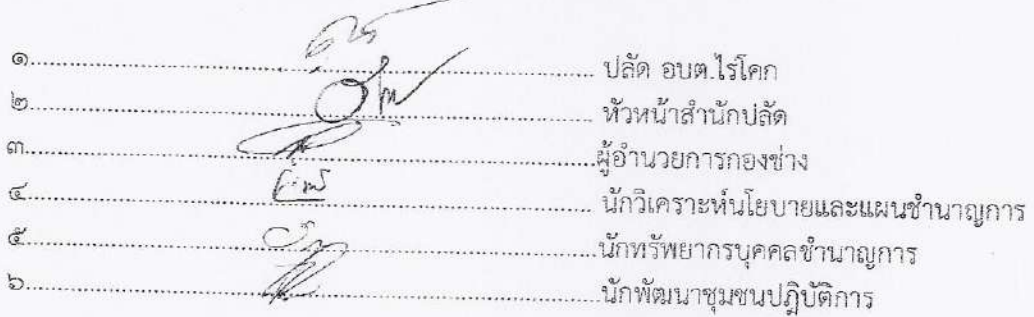 ๑........................................ปลัด อบต.ไร่โคก
๒........................................หัวหน้าสำนักปลัด
๓........................................ผู้อำนวยการกองช่าง
๔........................................นักวิเคราะห์นโยบายและแผนชำนาญการ
๕........................................นักทรัพยากรบุคคลชำนาญการ
๖........................................นักพัฒนาชุมชนปฏิบัติการ